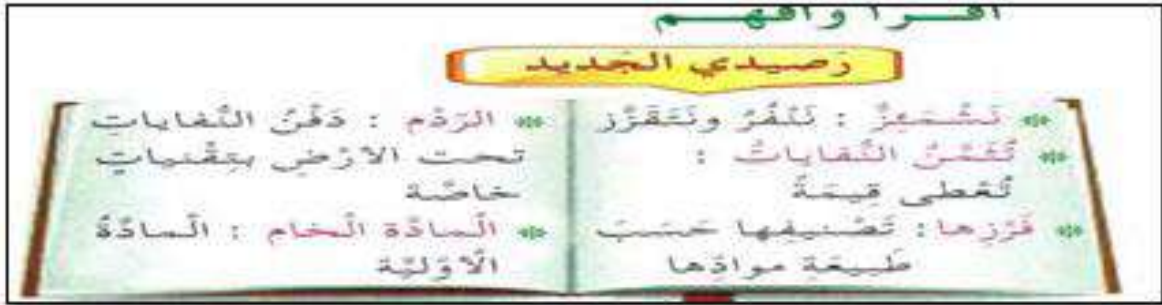 أقرأ وأفهم
رَصيدي الجَديد
* نَشْمَئِزُّ : نَنْفُرُ ونَتَقَزَّز
* تُثَمَّنُ النُّفاياتُ :
تُعْطى قيمَةً
* فَرْزِها : تَصْنيفِها حَسَبَ
طَبيعَةِ موادِّها
* الرَدْم : دَفْنُ النُّفاياتِ
تحت الأرْضِ بتِقْنياتٍ
خاصَّة
* الْمادَّة الْخام : الْمادَّةُ
الْأوَليَّة